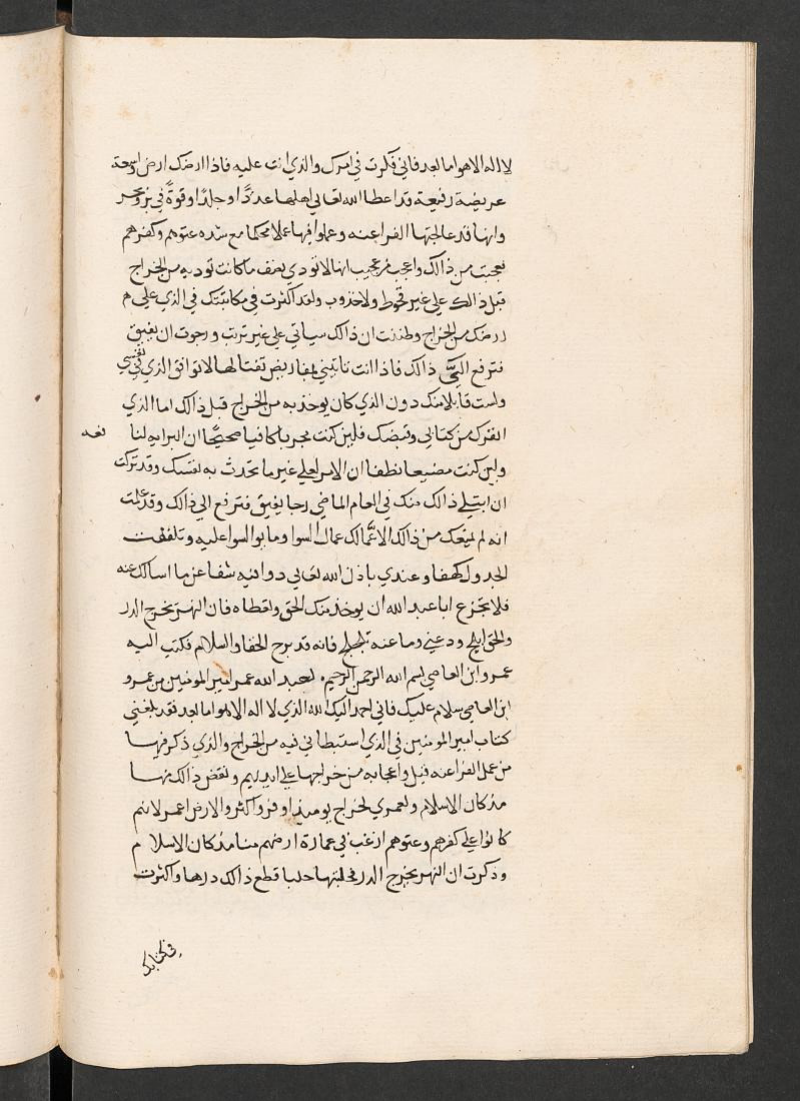 لا اله الا هو اما بعد فاني فكرت في امرك والذي انت عليه فاذا ارضك ارض واسعة
عريضة رفيعة قد اعطا الله تعالي اهلها عددًا وجلدًا وقوةً في بر وبحر
وانها قد عالجتها الفراعنه وعملوا فيها عملا محكما مع شده عتوهم وكفرهم
فعجبت من ذالك واعجب من عجيب انها لا تودي نصف ما كانت توديه من الخراج
قبل ذالك علي غير قحوط ولا جذوب ولقد اكثرت في مكاتبتك في الذي علي م
ارضك من الخراج وظننت ان ذالك سياتي علي غير ترتب ورجوت ان يفيق
فترفع اليَّ ذالك فاذا انت تاتيني بمعاريض تغتالها لا توافق الذي في نفسي
ولست قابلا منك دون الذي كان يوخذ به من الخراج قبل ذالك اما الذي
انفرك من كتابي وقبضك فلين كنت مجربا كافيا صحيحًا ان البرايه لنا نعــد
واين كنت مضيعا نطفا ان الامر لعلي غير ما تحدث به نفسك وقد تركت
ان ابتلي ذالك منك في العام الماضي رجا يفيق فترفع الي ذالك وقد علمت
انه لم يمنعك من ذالك الا عُمَّالك عمال السوا وما توالسوا عليه وتلففت
اتخدوك كهفا وعندي باذن الله تعالي دوا فيه شفا عن ما اسالك عنه
فلا تجزع ابا عبد الله ان يوخذ منك الحق وتعطاه فان النهر يخرج الدر
والحق ابلج ودعني وما عنه تلجلج فانه قد برح الخفا والسلام فكتب اليه
عمرو ابن العاصي بسم الله الرحمن الرحيم. لعبد الله عمر امير المومنين من عمرو
ابن العاصي سلام عليك فاني احمد اليك الله الذي لا اله الا هو اما بعد فقد بلغني
كتاب امير المومنين في الذي استبطاني فيه من الخراج والذي ذكر فيها
من عمل الفراعنه قبلي واعجابه من خراجها علي ايديهم ونقض ذالك منها
مذ كان الاسلام ولعمري لخراج يوميذ اوفر واكثر والارض اعمر لانهم
كانوا علي كفرهم وعتوهم ارغب في عمارة ارضهم منا مذ كان الاسلا م
وذكرت ان النهر يخرج الدر فحلبتها حلبا قطع ذالك درها واكثرت
في كتابك